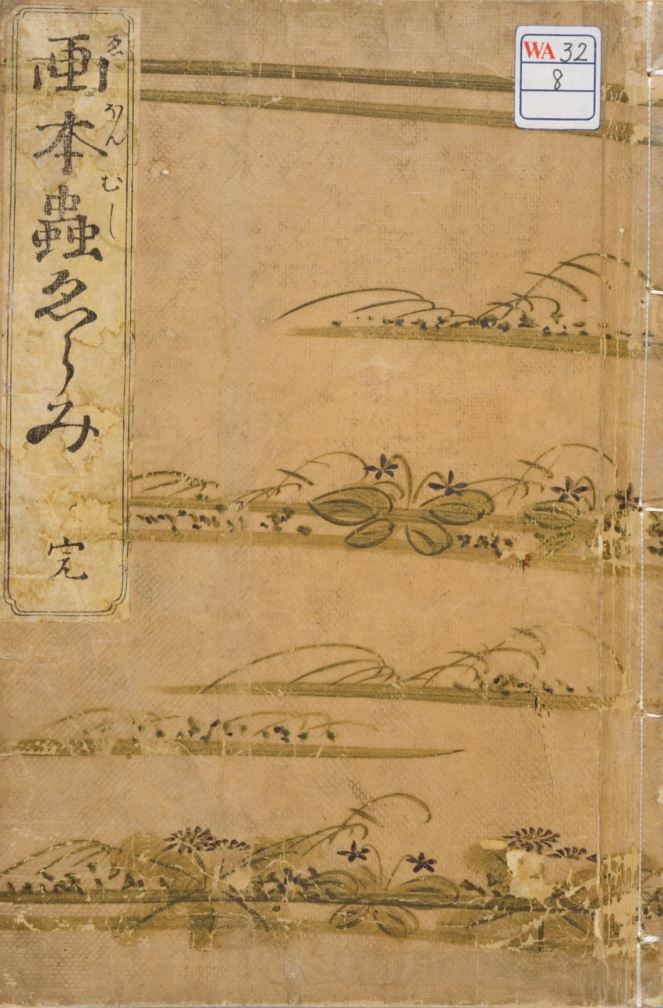 WA 32
8
ゑほんむし
画本蟲ゑらみ 完